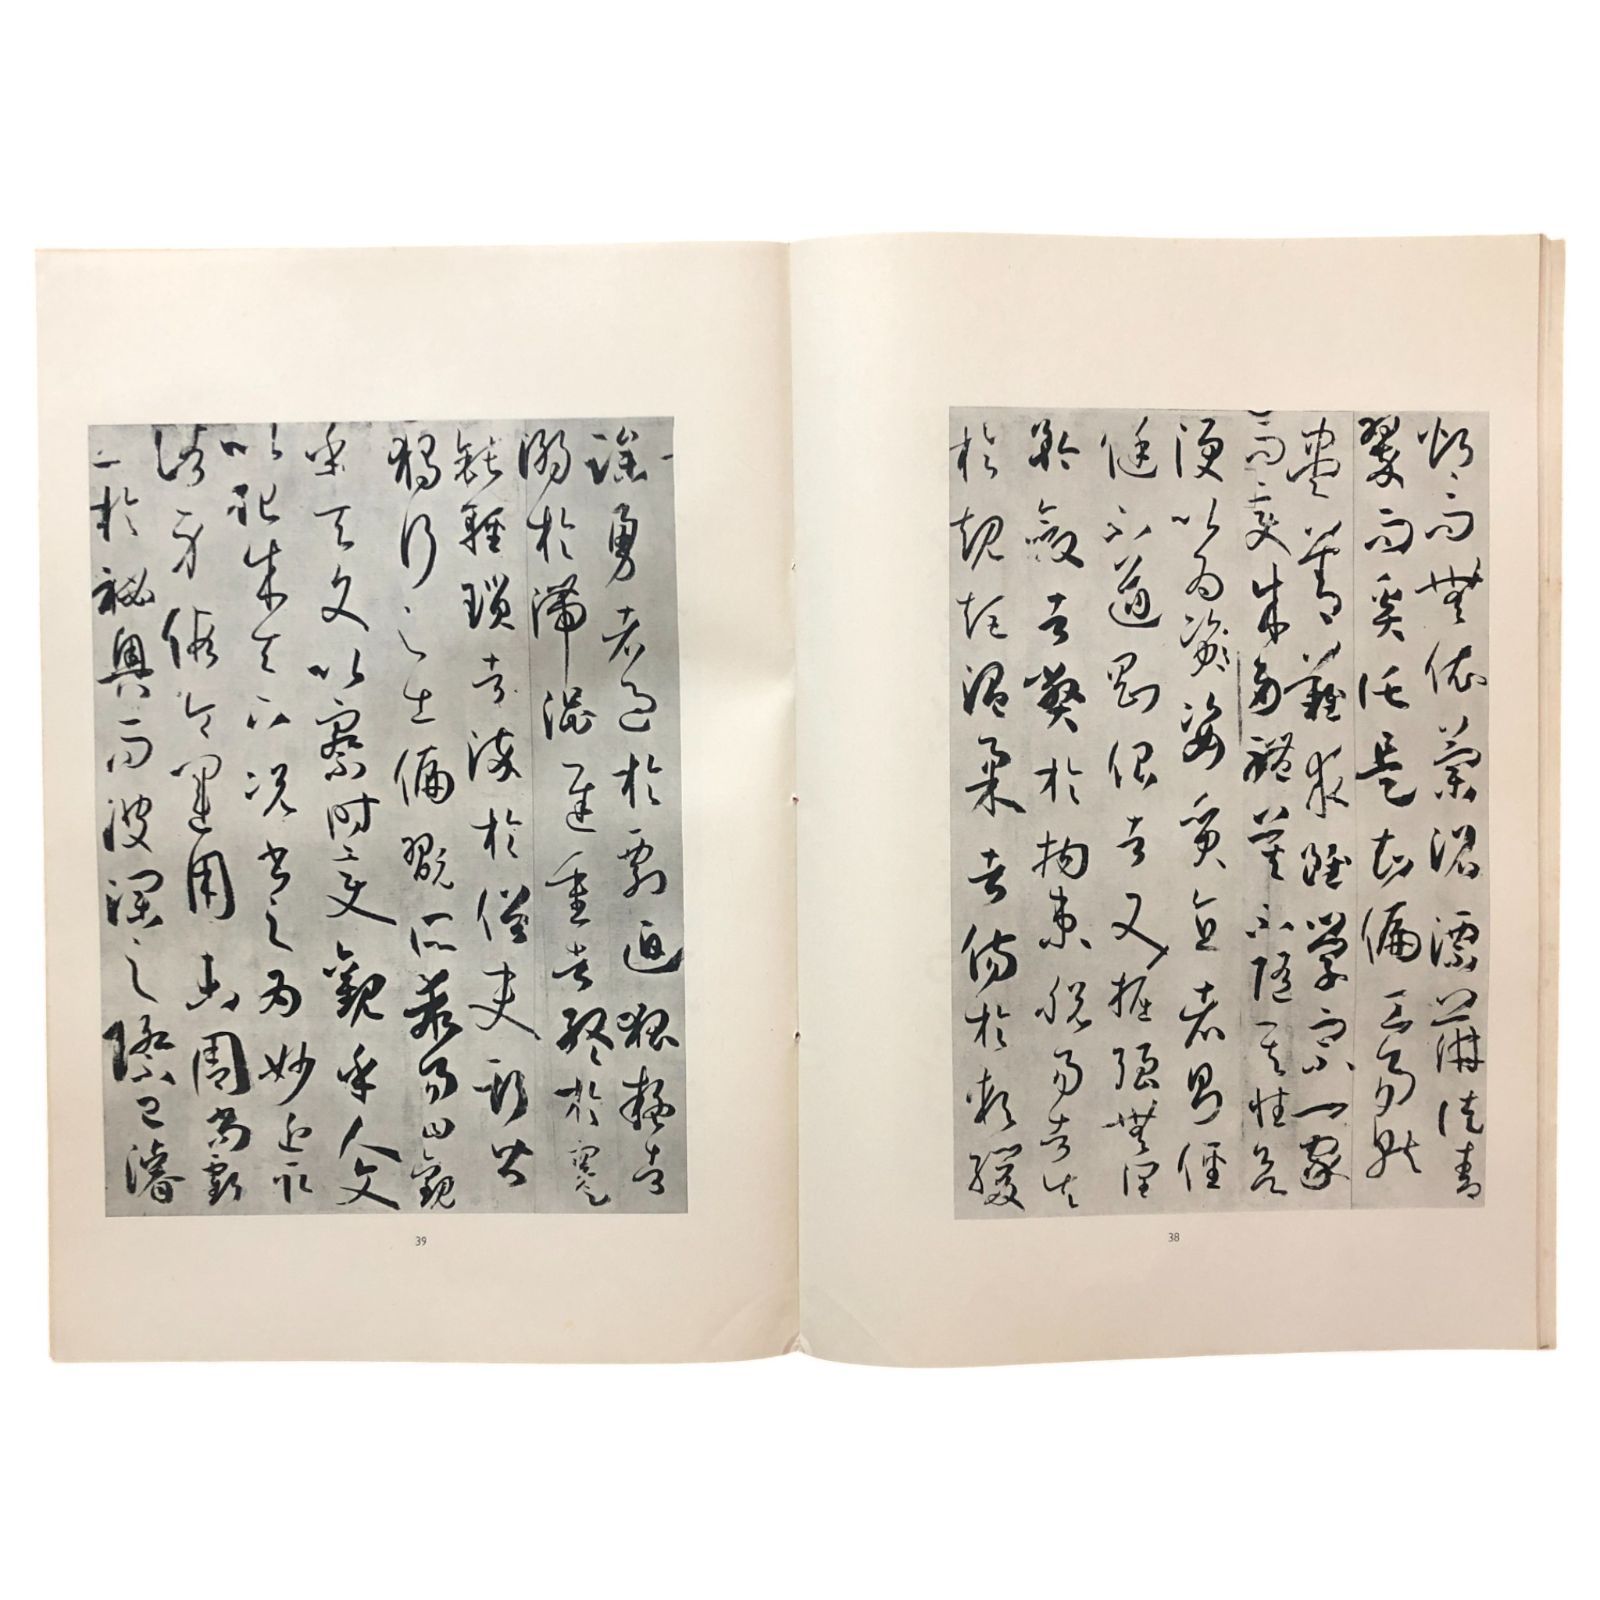 灼而無依蘭沼漂蓱徒青
翠而奚託是知偏工易就
盡善難求雖學宗一家
而變成多體莫不隨其性欲
便以為姿質直者則俓
侹不遒剛佷者又掘強無潤
矜斂者弊於拘束脫易者失
於規矩溫柔者傷於軟緩
38
躁勇者過於剽迫狐疑者
溺於滯澀遲重者終於蹇
鈍輕瑣者染於俗吏斯皆
獨行之士偏翫所乖易曰觀
乎天文以察時變觀乎人文
以化成天下況書之為妙近取
諸身假令運用未周尚虧
工於祕奧而波瀾之際已濬
39